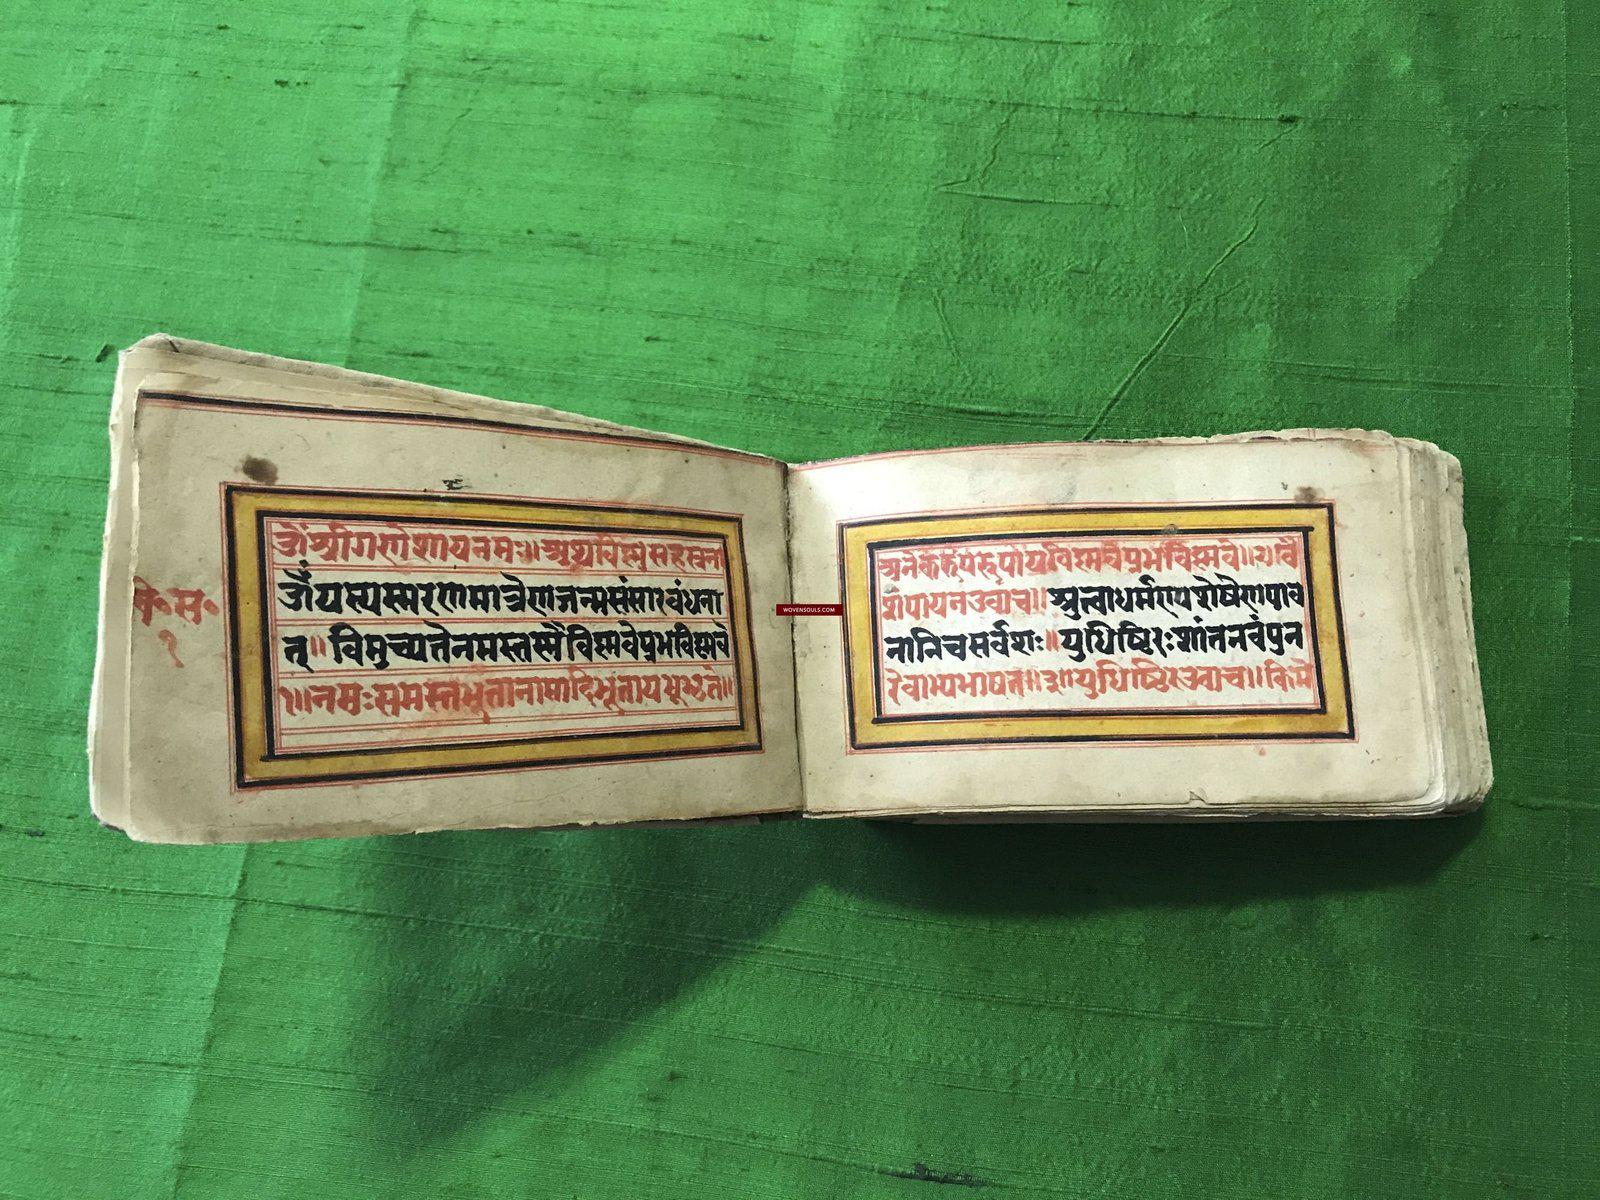 ॐश्रीगणेशायनमः॥अथविष्णुसहस्रना
ॐयस्यस्मरणमात्रेणजन्मसंसारबंधना
वि॰स॰
१
त्॥विमुच्यतेनमस्तस्मैविष्णवेप्रभविष्णवे
१॥नमःसमस्तभूतानामादिभूतायभूभृते॥
अनेकरूपरूपायविष्णवेप्रभविष्णवे॥
वैशंपायनउवाच॥श्रुत्वाधर्माण्यशेषेणपाव
नानिचसर्वशः॥युधिष्ठिरःशांतनवंपुन
रेवाभ्यभाषत॥युधिष्ठिरउवाच॥किमे
WOVENSOULS.COM